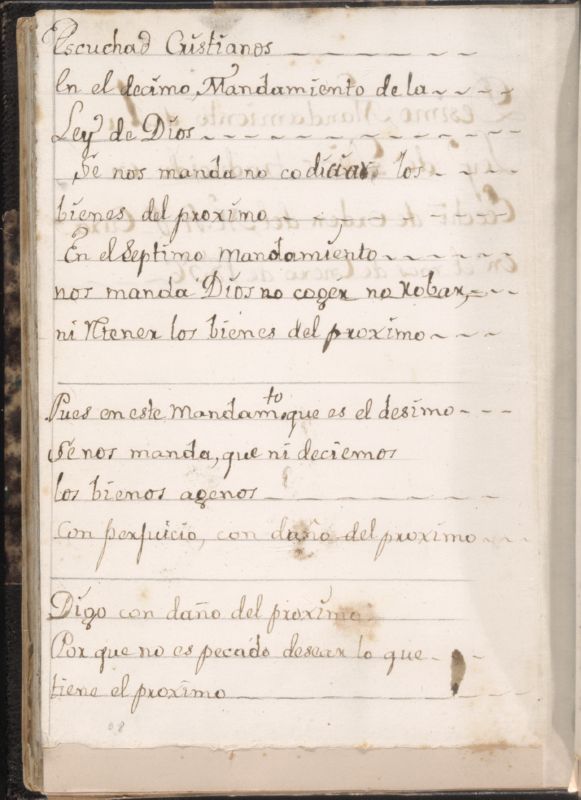 Escuchad Cristianos
En el decimo, Mandamiento de la
Ley de Dios
Se nos manda no codiciar los
bienes del proximo
En el Septimo mandamiento
nos manda Dios no coger no Robar,
ni Rtener los bienes del proximo
Pues en este Mandamto. que es el desimo
Se nos manda, que ni deciemos
los bienos agenos
Con perjuicio, con daño del proximo
Digo con daño del proximo
Por que no es pecado desear lo que
tiene el proximo